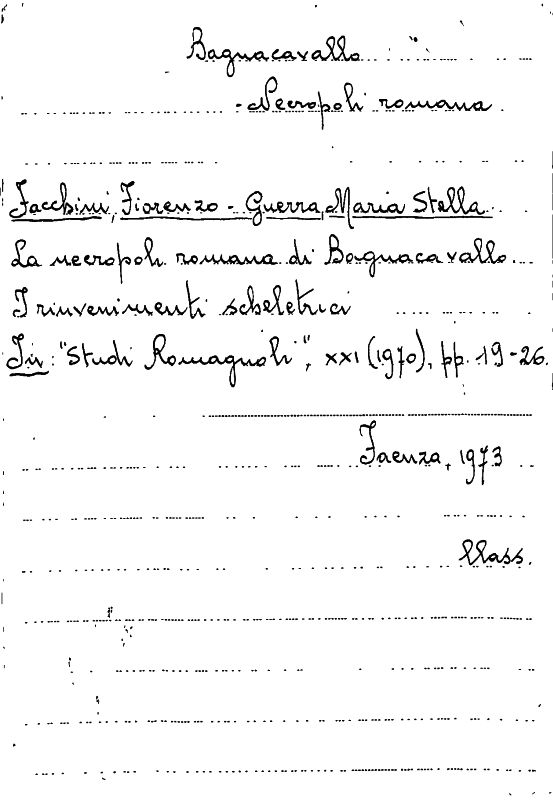 Bagnacavallo
- Necropoli romana
Facchini, Fiorenzo - Guerra, Maria Stella
La necropoli romana di Bagnacavallo.
I rinvenimenti scheletrici
In: "Studi Romagnoli", XXI (1970), pp. 19-26.
Faenza, 1973